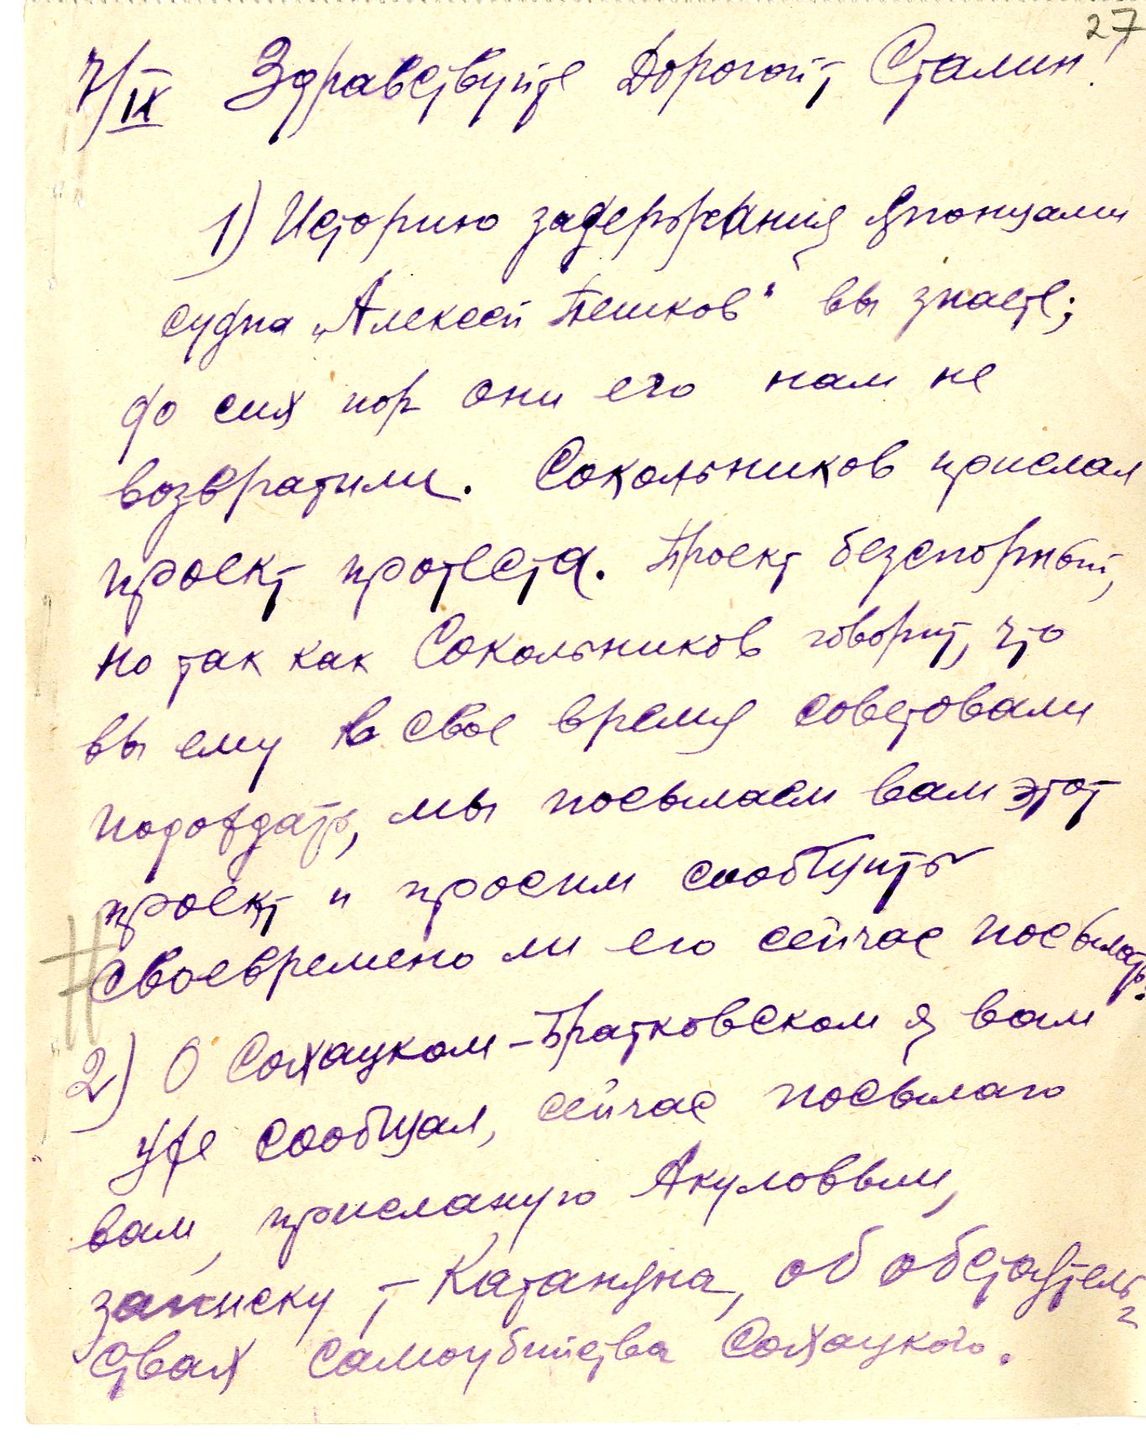 27
7/IX Здравствуйте Дорогой Сталин!
1) Историю задержания японцами
судна „Алексей Пешков“ вы знаете;
до сих пор они его нам не
возвратили. Сокольников прислал
проект протеста. Проект безспорный,
но так как Сокольников говорит, что
вы ему в свое время советовали
подождать, мы посылаем вам этот
проект и просим сообщить
своевремено ли его сейчас посылать.
2) О Сохацком-Братковском я вам
уже сообщал, сейчас посылаю
вам, присланую Акуловым,
записку т. Катаняна, об обстоятель
ствах самоубийства Сохацкого.